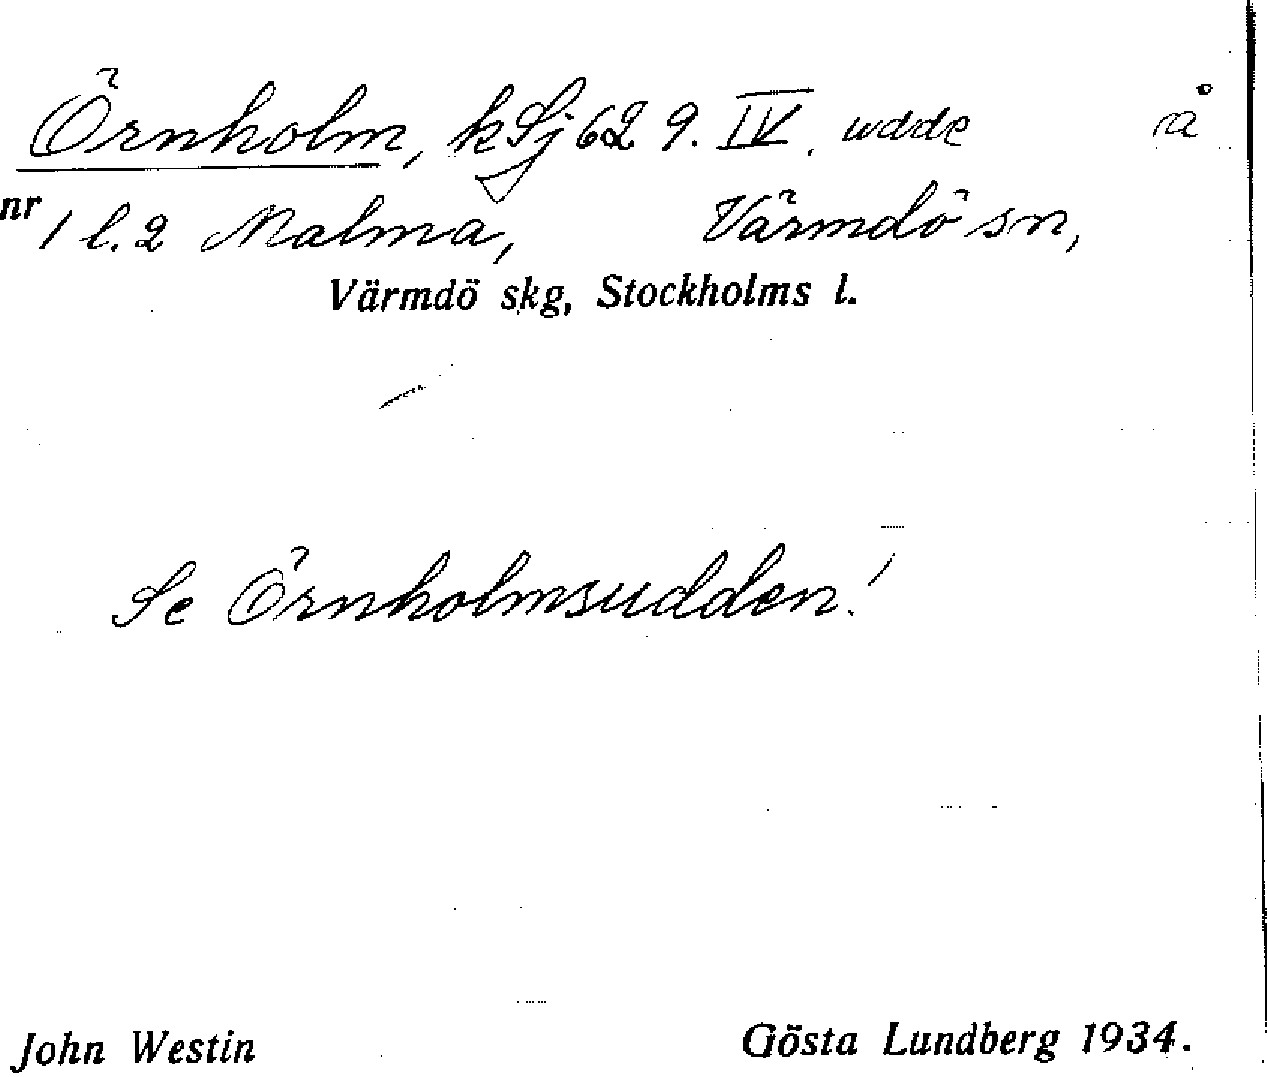 Örnholm, kSj 62 9. IV. udde å
nr 1 l. 2 Malma, Värmdö sn,
Värmdö skg, Stockholms l.
Se Örnholmsudden!
John Westin Gösta Lundberg 1934.